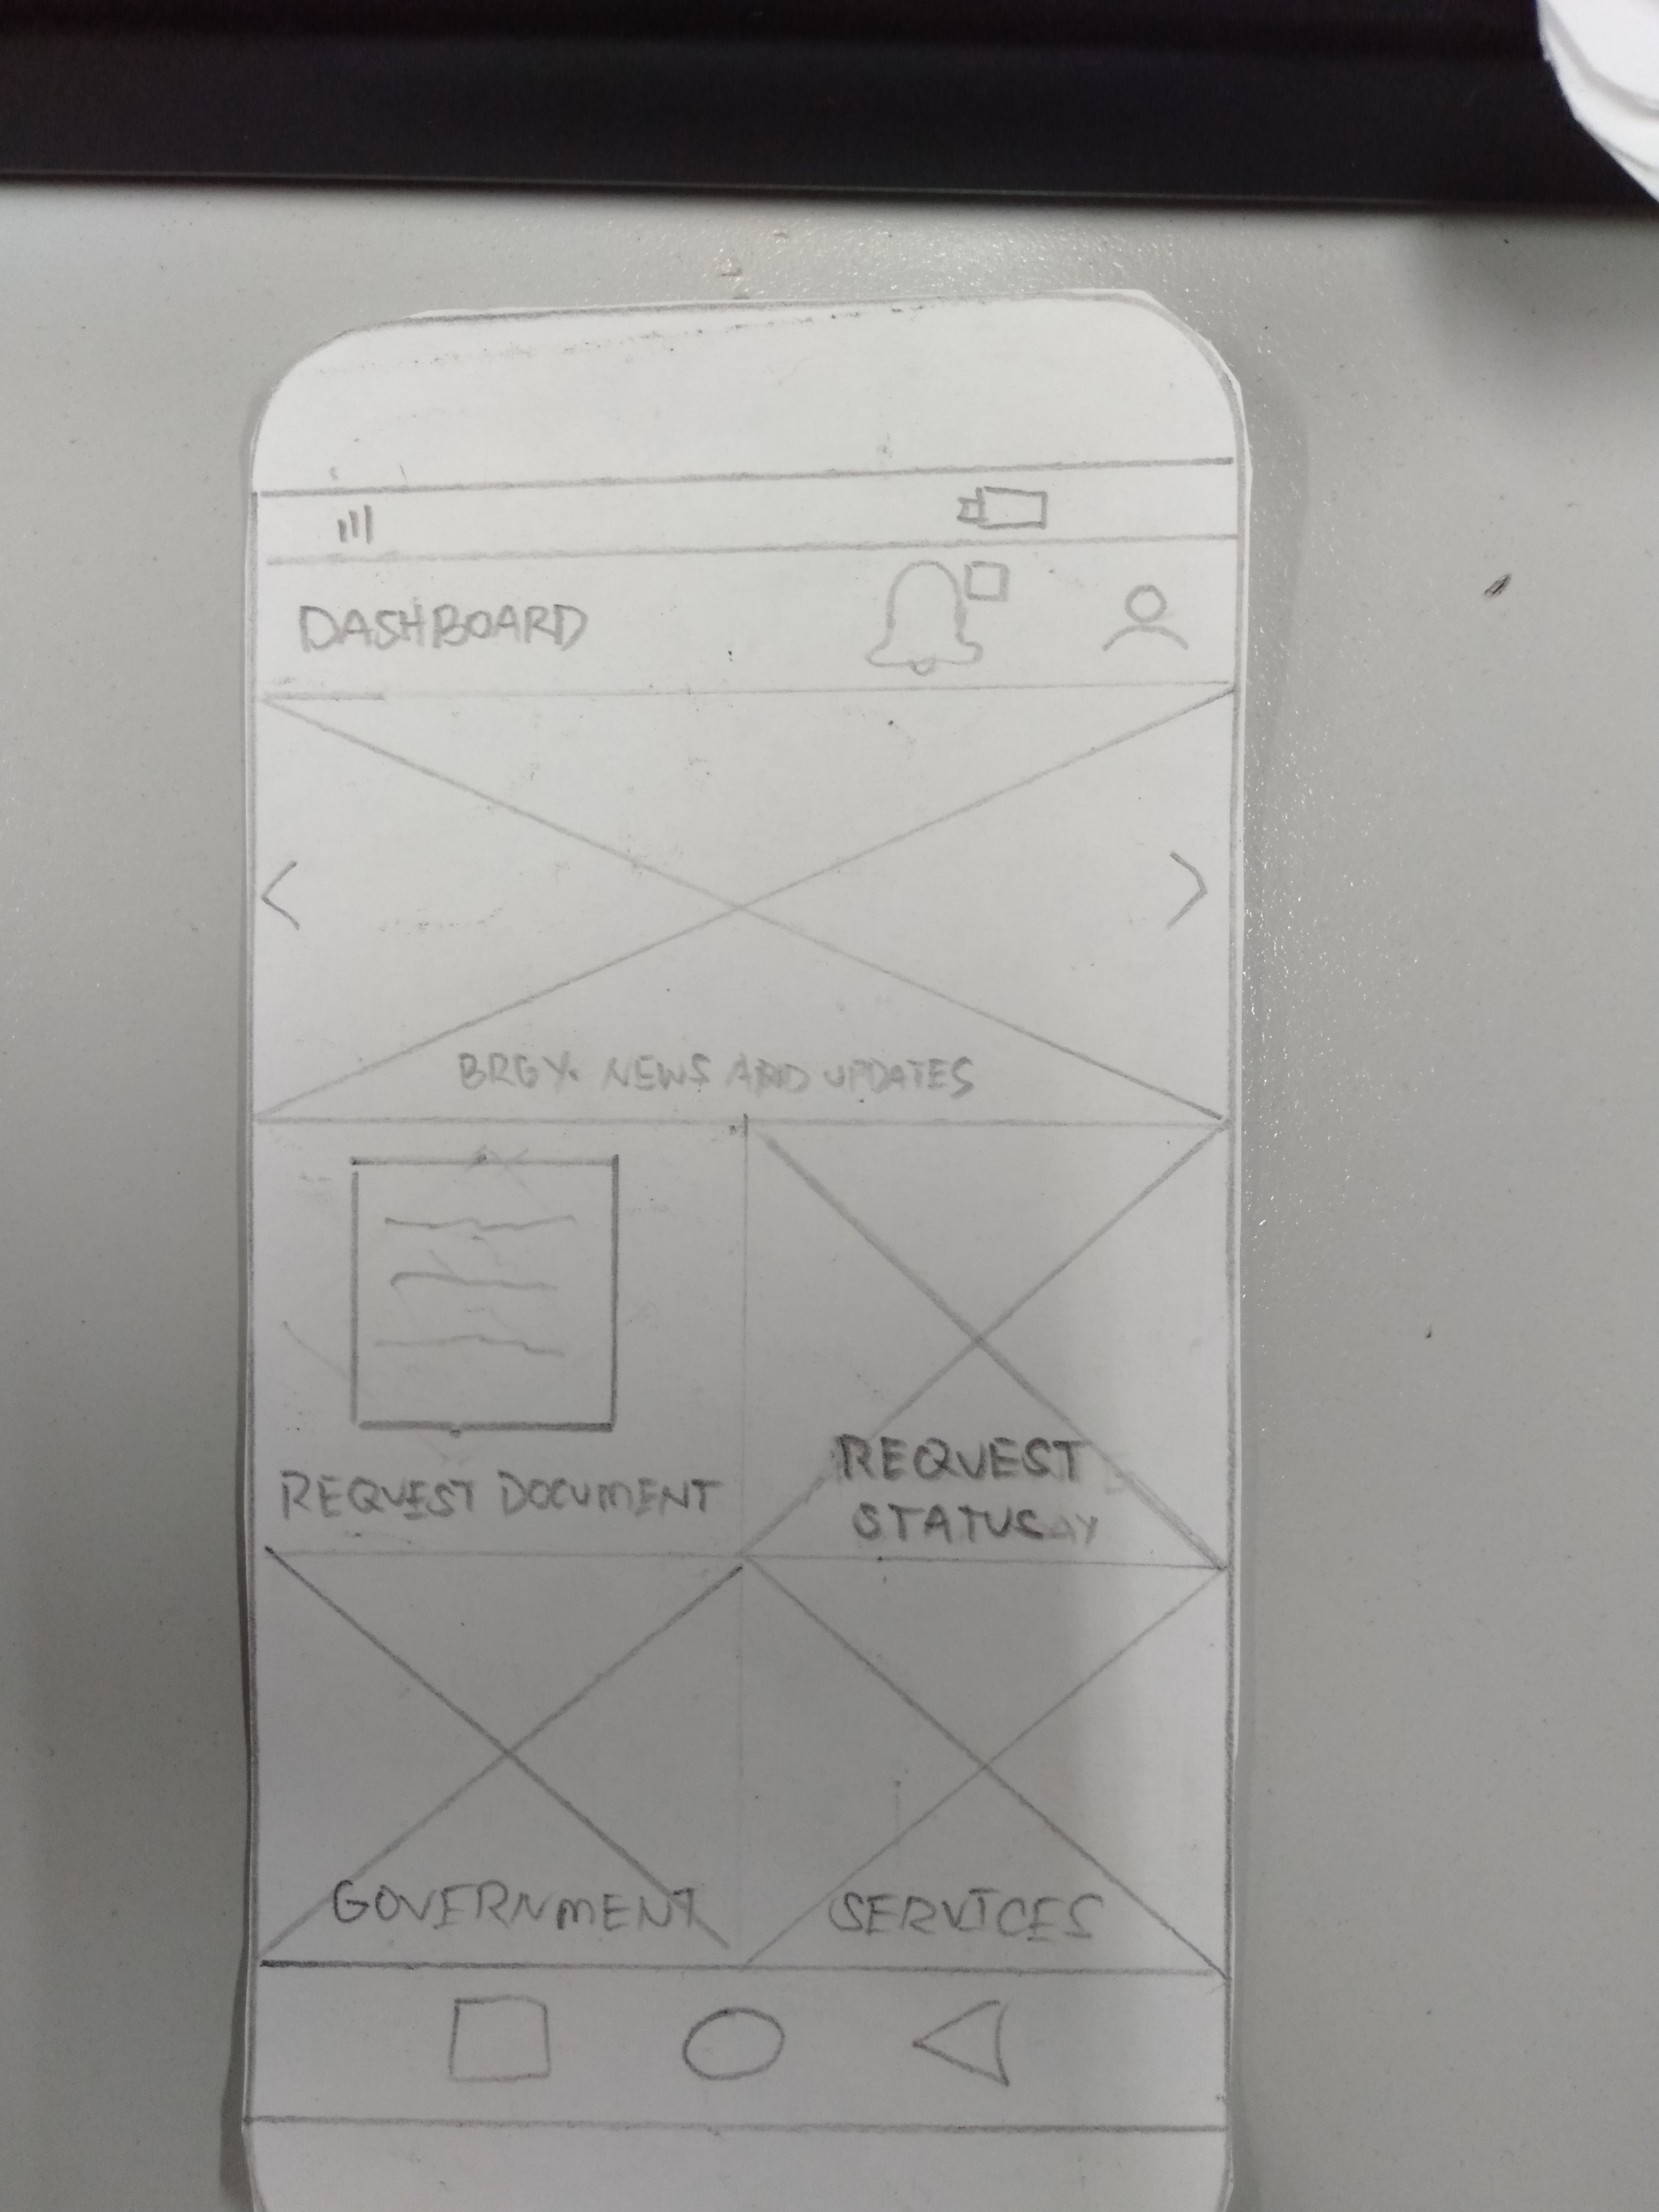 DASHBOARD
BRGY. NEWS AND UPDATES
REQUEST DOCUMENT
REQUEST
STATUS
GOVERNMENT
SERVICES